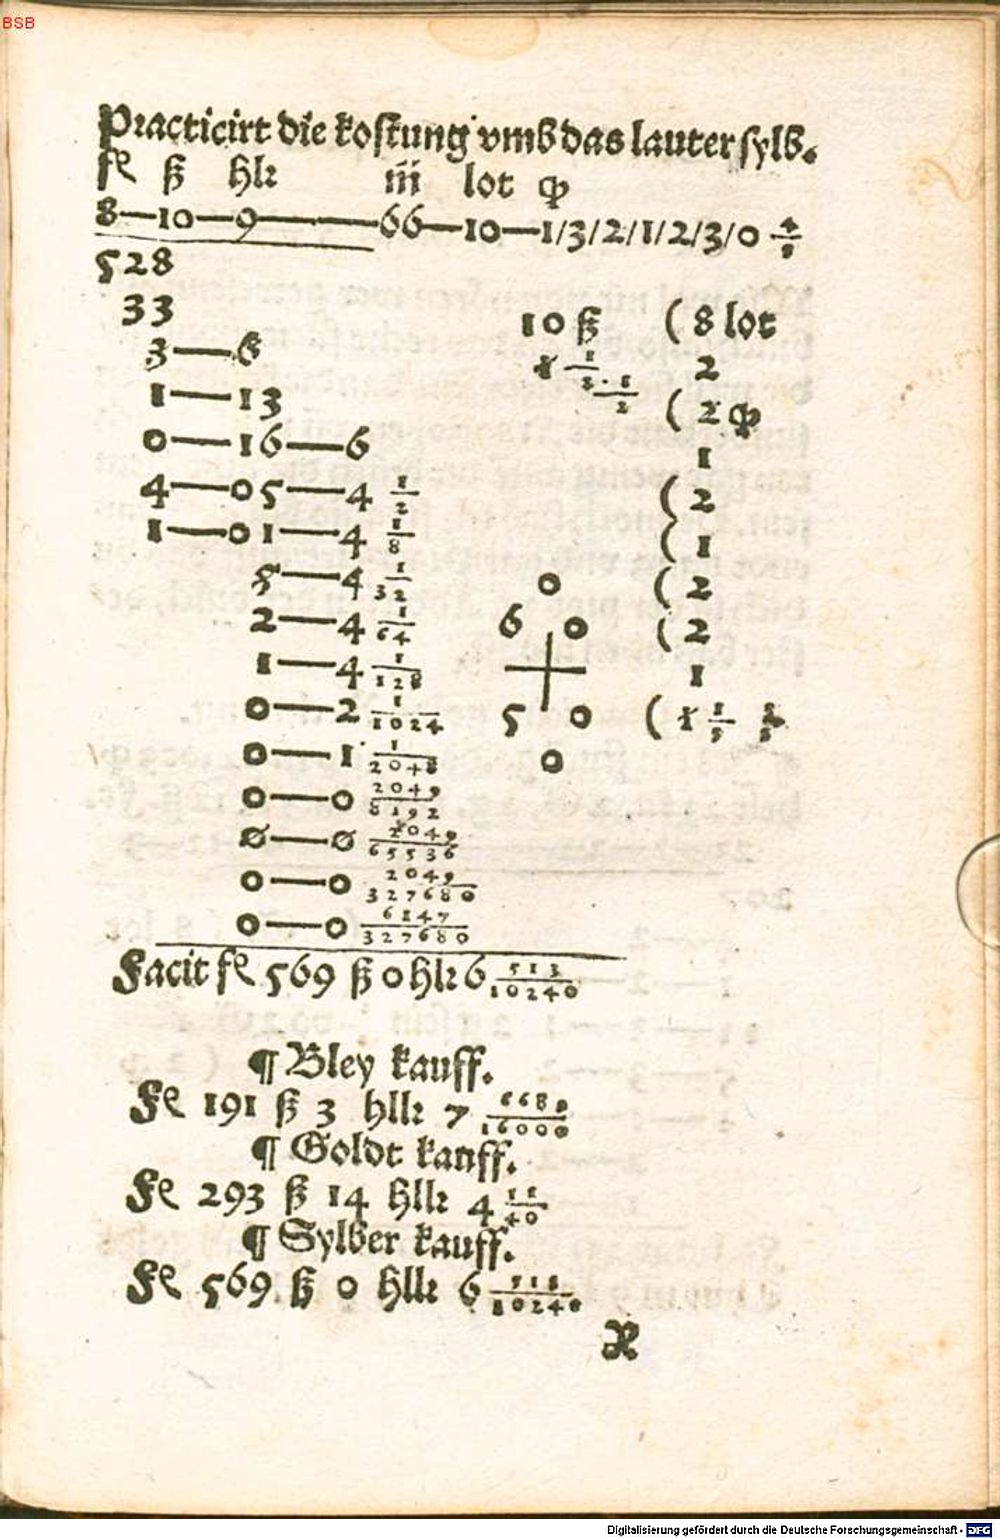 BSB
Practicirt die kostung vmb das lauter sylb.
fl ß hlr m lot q
8—10—9———66—10—1/3/2/1/2/3/0 4/5
528
33 10 ß ( 8 lot
3—6 1 1/2 1/2 2
1—13 ( 2 q
0—16—6 1
4—05—4 1/2 ( 2
1—01—4 1/8 ( 1
5—4 1/32 0 ( 2
2—4 1/64 6 0 ( 2
1—4 1/128 1
0—2 1/1024 5 0 ( 1 1/5
0—1 1/2048 0
0—0 2049/8192
0—0 2049/65536
0—0 2049/327680
0—0 6147/327680
Facit fl 569 ß 0 hlr 6 513/10240
¶ Bley kauff.
Fl 191 ß 3 hllr 7 /16000
¶ Goldt kauff.
Fl 293 ß 14 hllr 4 11/40
¶ Sylber kauff.
Fl 569 ß 0 hllr 6 /10240
Digitalisierung gefördert durch die Deutsche Forschungsgemeinschaft - DFG